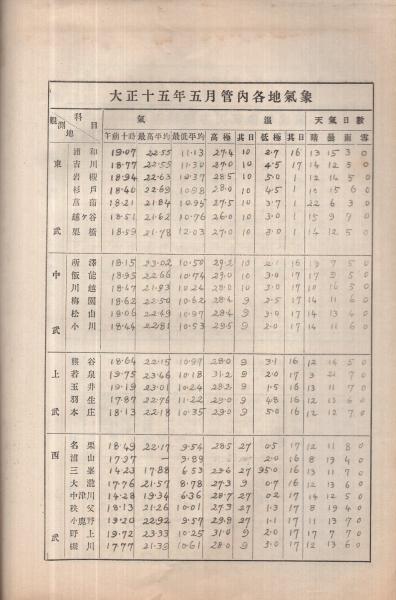 大正十五年五月管內各地氣象
科目 氣溫 天氣日數
觀測地 午前十時 最高平均 最低平均 高極 其日 低極 其日 晴 曇 雨 雪
東武
浦和 19.07 22.55 11.13 27.4 10 2.7 16 13 15 3 0
吉川 18.77 22.55 11.30 27.0 10 4.5 17 14 12 5 0
岩槻 18.94 22.63 10.37 28.5 10 5.0 1 12 14 5 0
杉戶 18.40 22.69 10.98 28.0 10 4.5 1 10 15 6 0
菖蒲 18.21 21.84 10.95 27.5 10 3.7 1 22 6 3 0
越ケ谷 18.51 21.62 10.76 26.0 10 3.0 1 15 9 7 0
栗橋 18.59 21.78 12.03 27.0 10 3.0 1 14 12 5 0
中武
所澤 18.15 23.02 10.50 29.2 10 2.1 16 7 5 0
飯能 18.95 22.66 10.74 29.0 10 3.0 17 17 9 5 0
川越 18.47 21.93 10.24 28.0 10 3.0 17 10 16 5 0
梅園 18.62 22.50 10.62 28.4 9 2.5 17 14 11 6 0
松山 19.06 22.49 10.97 28.4 9 3.0 17 14 13 4 0
小川 18.44 22.81 10.53 29.5 9 2.0 17 14 11 6 0
上武
熊谷 18.64 22.15 10.97 28.0 9 3.1 16 12 14 5 0
若泉 19.75 23.46 10.18 31.2 9 2.0 17 3 21 7 0
玉井 19.19 23.01 10.24 28.2 9 1.5 16 13 11 7 0
羽生 17.87 22.76 11.22 29.0 9 4.8 16 12 13 6 0
本庄 18.13 22.18 10.35 29.0 9 5.0 16 12 12 7 0
西武
名栗 18.49 22.17 9.54 28.5 27 0.5 17 12 11 8 0
浦山 17.97 9.89 2.0 16 8 19 4 0
三峯 14.23 17.88 6.53 23.6 27 95.0 16 13 11 7 0
大瀧 17.76 21.57 8.78 27.3 9 0.7 16 12 13 6 0
中津川 14.28 19.34 6.36 28.7 27 0.2 17 14 12 5 0
秩父 18.13 21.26 10.01 27.9 27 1.3 17 8 19 4 0
小鹿野 19.20 22.92 9.57 29.8 27 1.1 17 11 13 7 0
野上 19.72 23.33 10.25 31.0 9 2.0 17 17 7 7 0
槻川 17.77 21.39 10.61 28.0 9 3.0 17 12 13 6 0